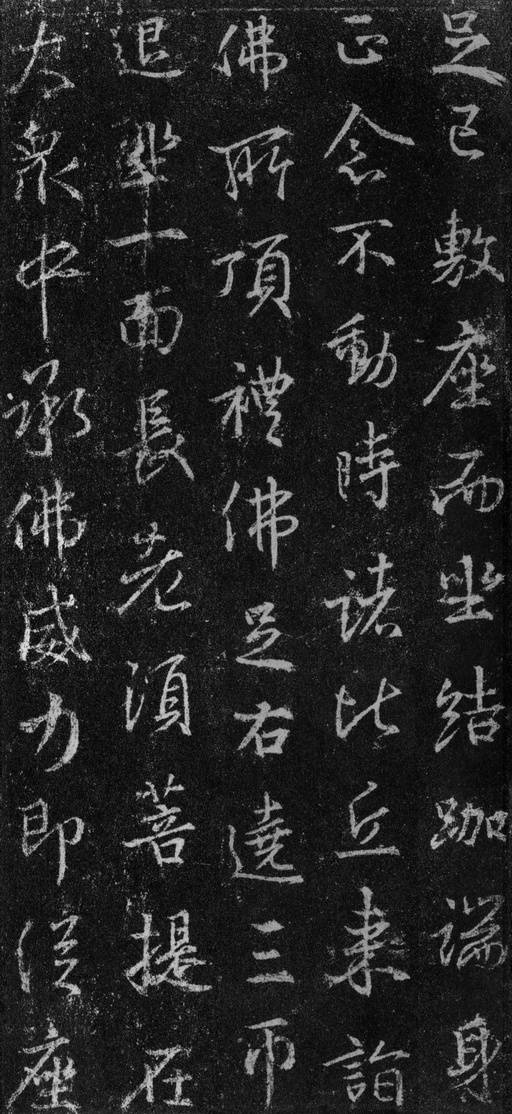 足已敷座而坐結跏端身
正念不動時諸比丘来詣
佛所頂禮佛足右遶三帀
退坐一面長老須菩提在
大衆中承佛威力即從座